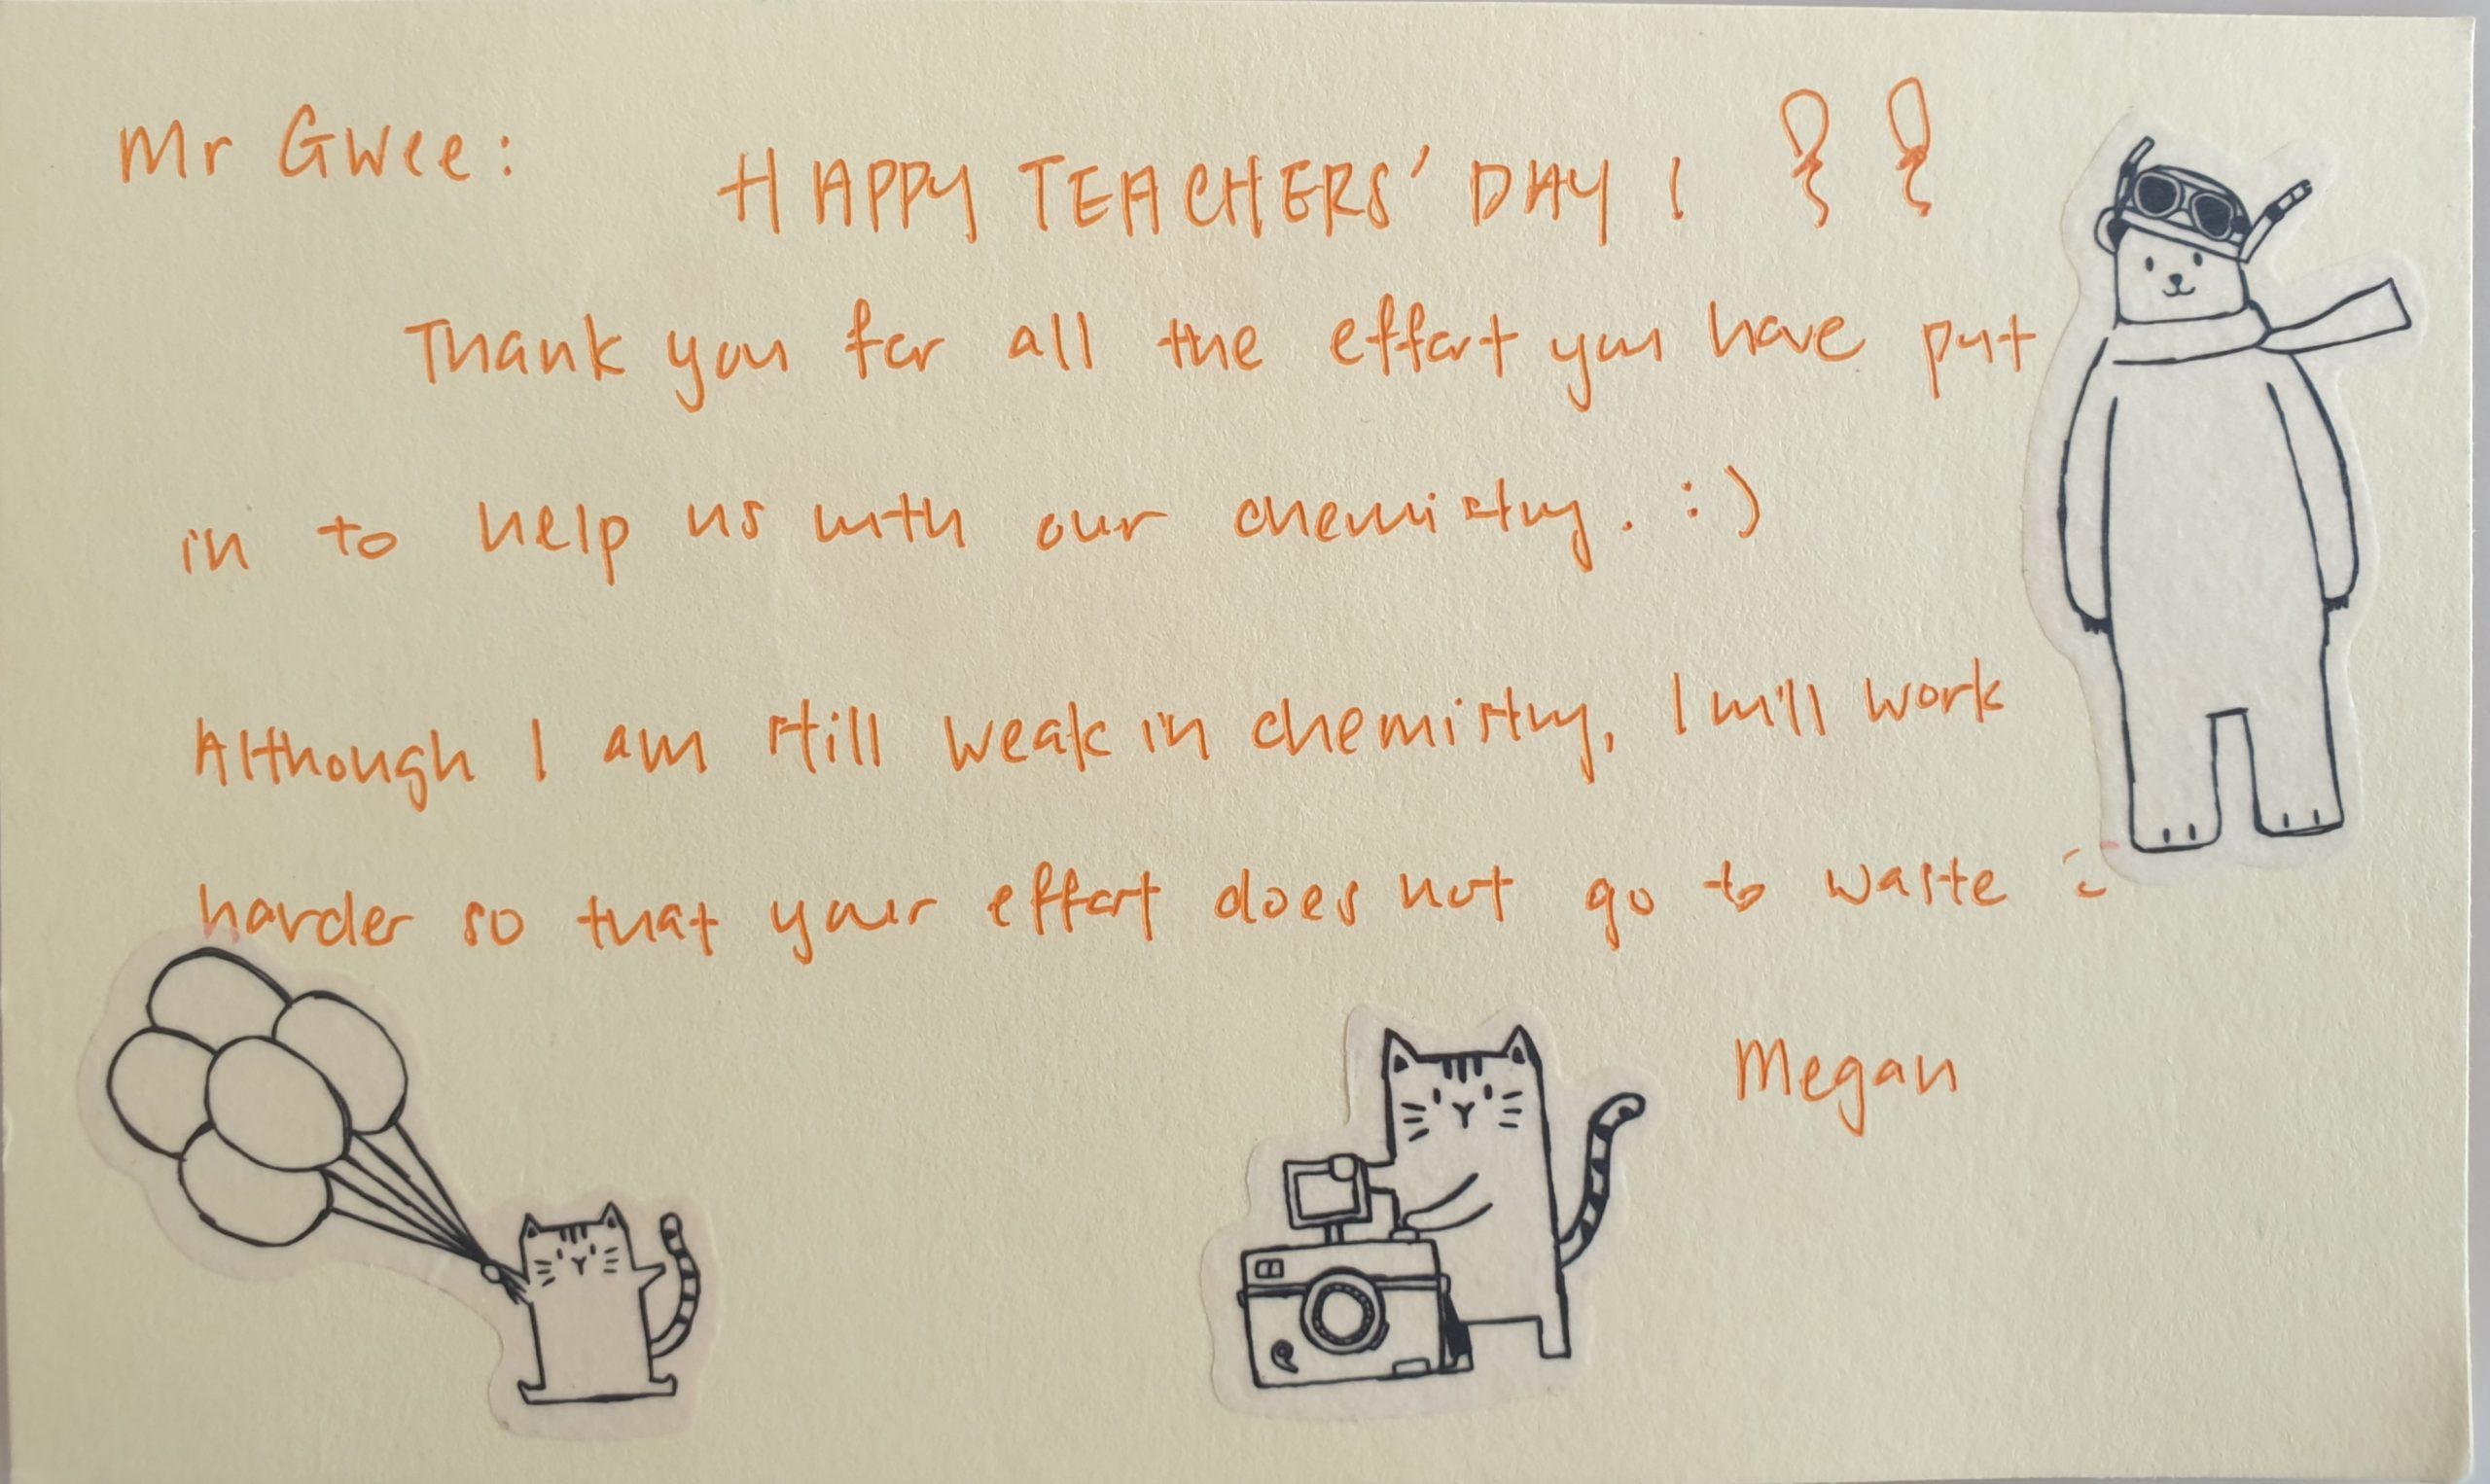 Mr Gwee:
HAPPY TEACHERS' DAY!
Thank you for all the effort you have put
in to help us with our chemistry. :)
Although I am still weak in chemistry, I will work
harder so that your effort does not go to waste :
Megan